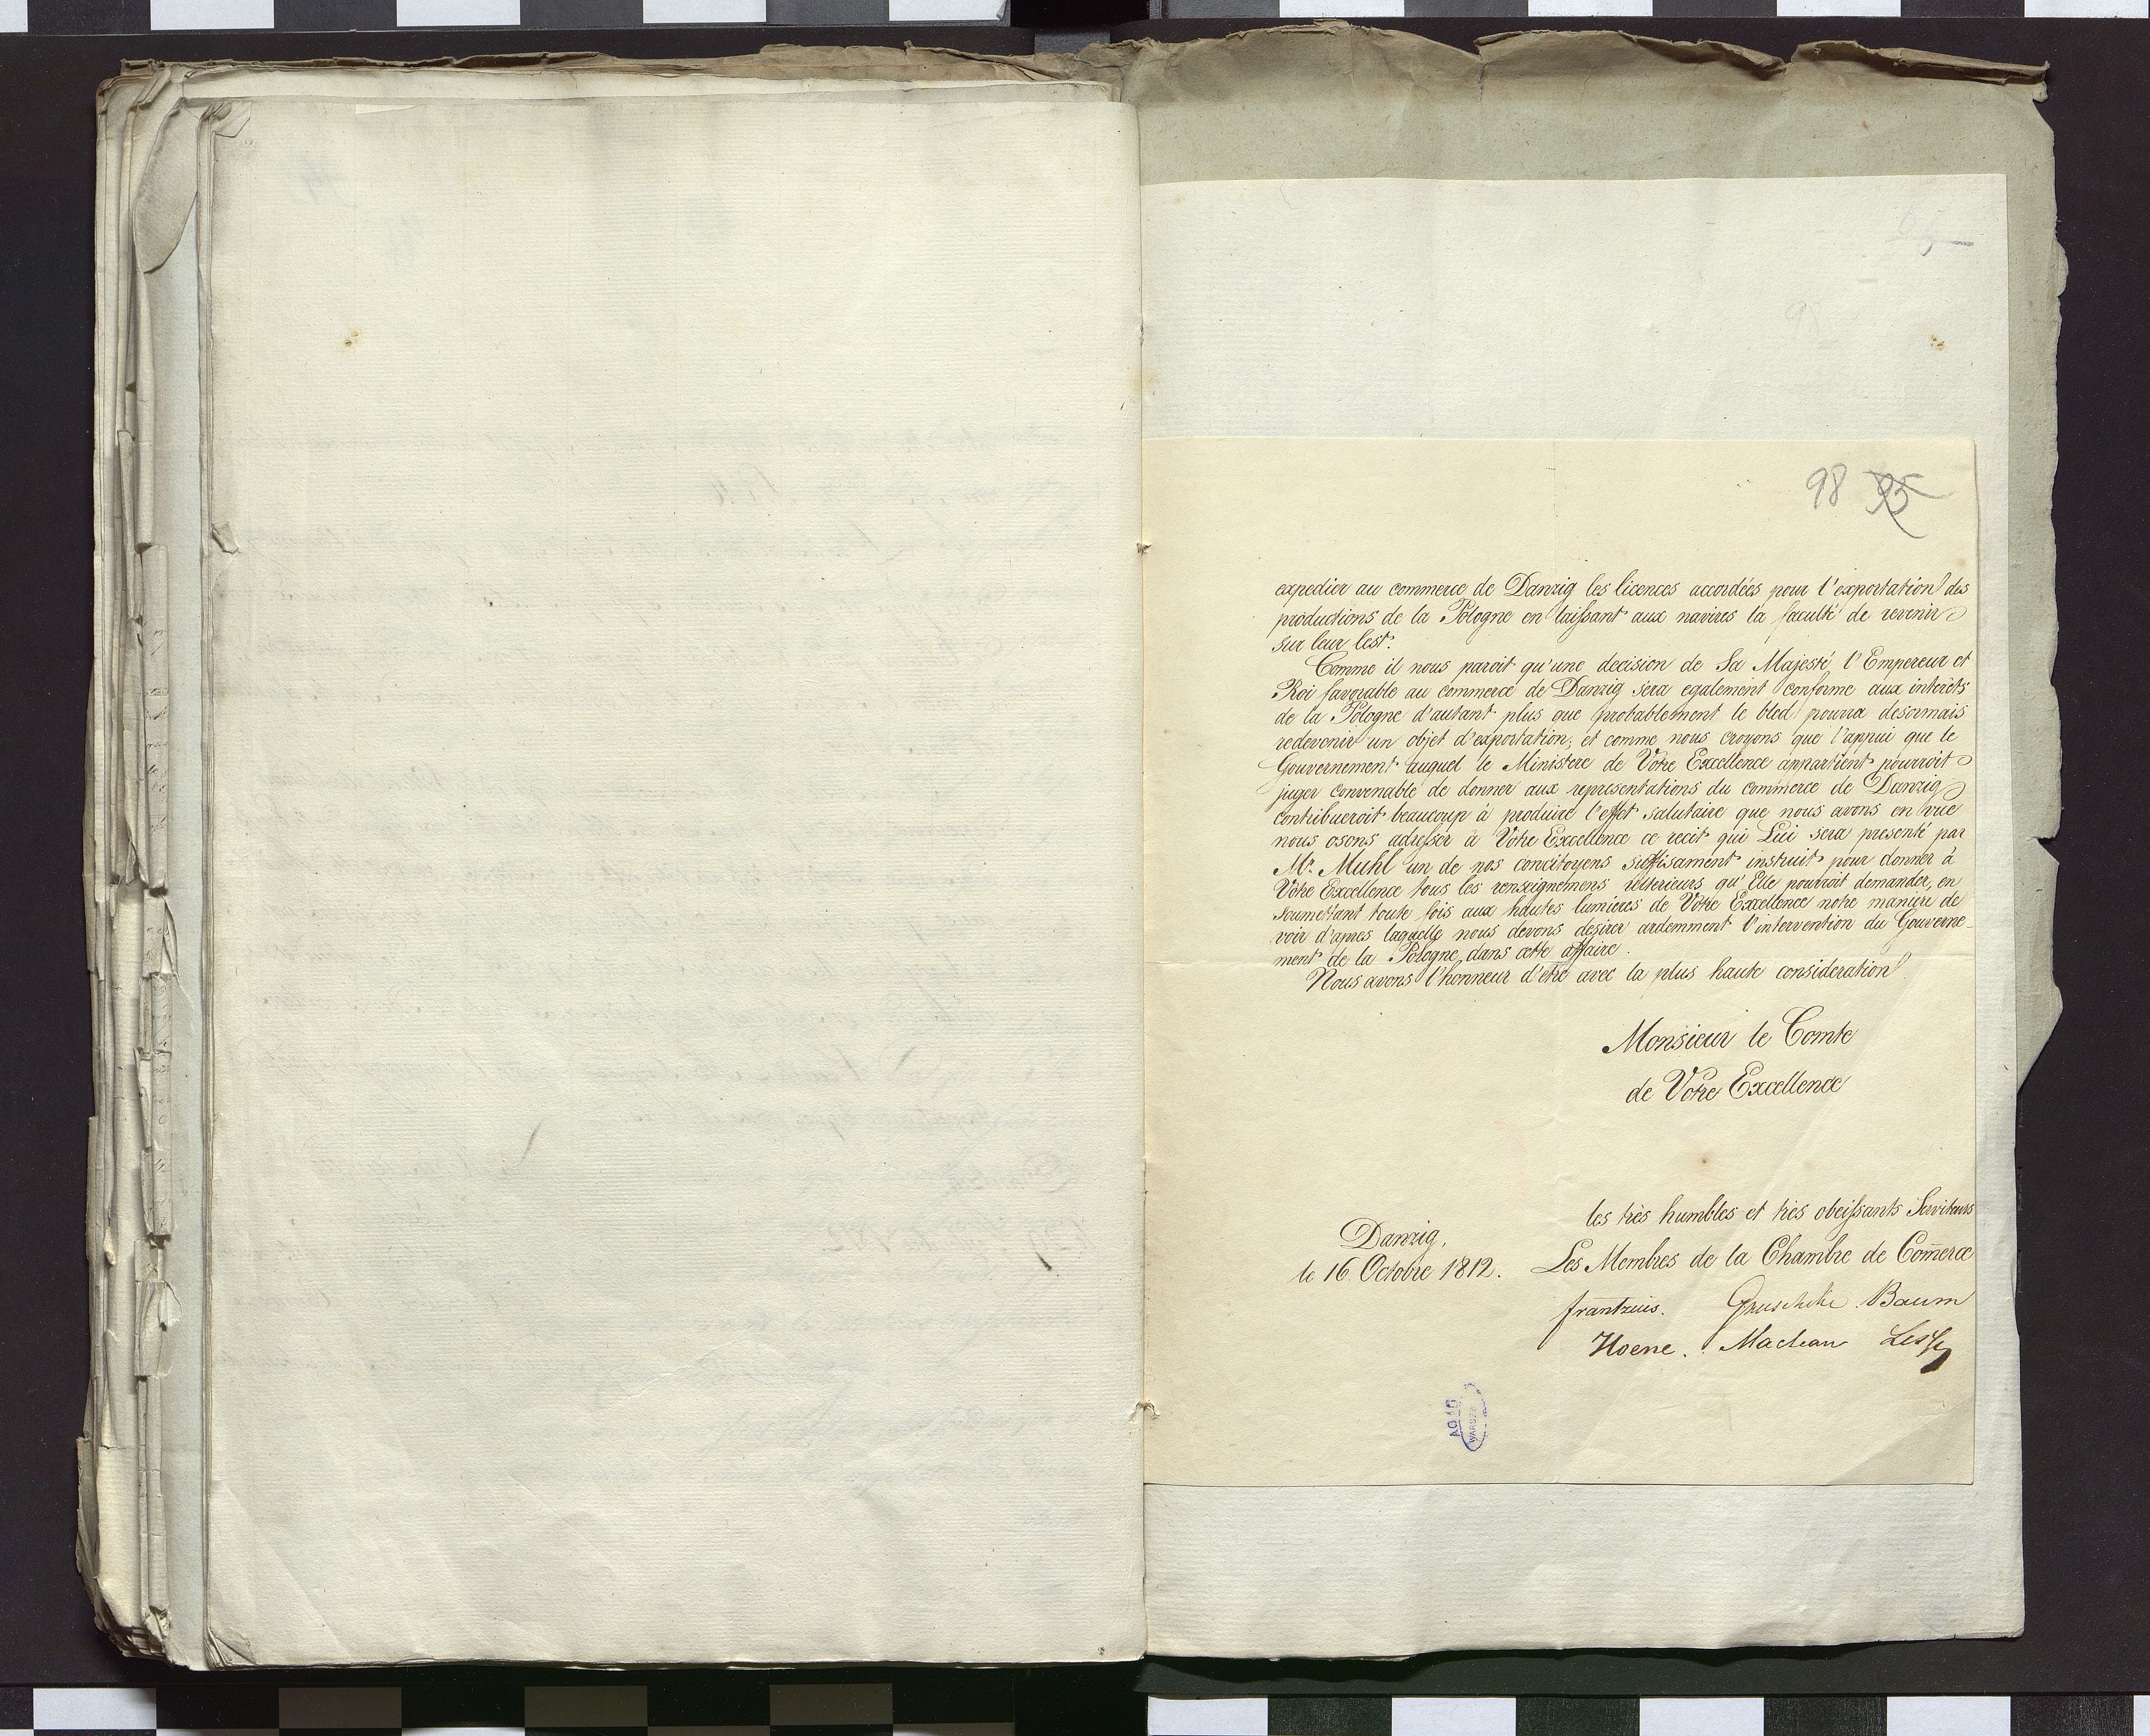 98 95
expedier au commerce de Danzig les licences accordées pour l'exportation des
productions de la Pologne en laissant aux navires la faculté de revenir
sur leur lest.
Comme il nous paroit qu'une decision de Sa Majesté l'Empereur et
Roi favorable au commerce de Danzig sera egalement conforme aux interêts
de la Pologne d'autant plus que probablement le bled pourra desormais
redevenir un objet d'exportation; et comme nous croyons que l'appui que le
Gouvernement auquel le Ministère de Votre Excellence appartient pourroit
juger convenable de donner aux representations du commerce de Danzig
contribueroit beaucoup à produire l'effet salutaire que nous avons en vue
nous osons adresser à Votre Excellence ce recit qui Lui sera presenté par
Mr. Muhl un de nos concitoyens suffisament instruit pour donner à
Votre Excellence tous les renseignemens ulterieurs qu'Elle pourroit demander, en
soumettant toute fois aux hautes lumieres de Votre Excellence notre manière de
voir d'apres laquelle nous devons desirer ardemment l'intervention du Gouverne-
ment de la Pologne dans cette affaire.
Nous avons l'honneur d'être avec la plus haute consideration
Monsieur le Comte
de Votre Excellence
les très humbles et très obeissants Serviteurs
Danzig,
le 16. Octobre 1812.
Les Membres de la Chambre de Com̄erce
frantzius. Gruschke Baum
Hoene. Maclean Lesse
AGAD
WARSZA